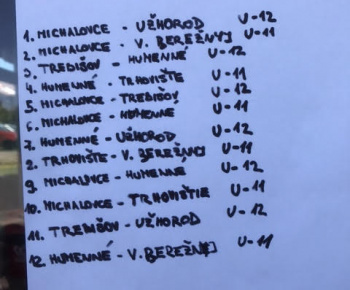 1. MICHALOVCE - UŽHOROD U-12
2. MICHALOVCE - V. BEREŽNYJ U-11
3. TREBIŠOV - HUMENNÉ U-12
4. HUMENNÉ - TRHOVIŠTE U-11
5. MICHALOVCE - TREBIŠOV U-12
6. MICHALOVCE - HUMENNÉ U-11
7. HUMENNÉ - UŽHOROD U-12
8. TRHOVIŠTE - V. BEREŽNYJ U-11
9. MICHALOVCE - HUMENNÉ U-12
10. MICHALOVCE - TRHOVIŠTIE U-11
11. TREBIŠOV - UŽHOROD U-12
12. HUMENNÉ - V. BEREŽNYJ U-11